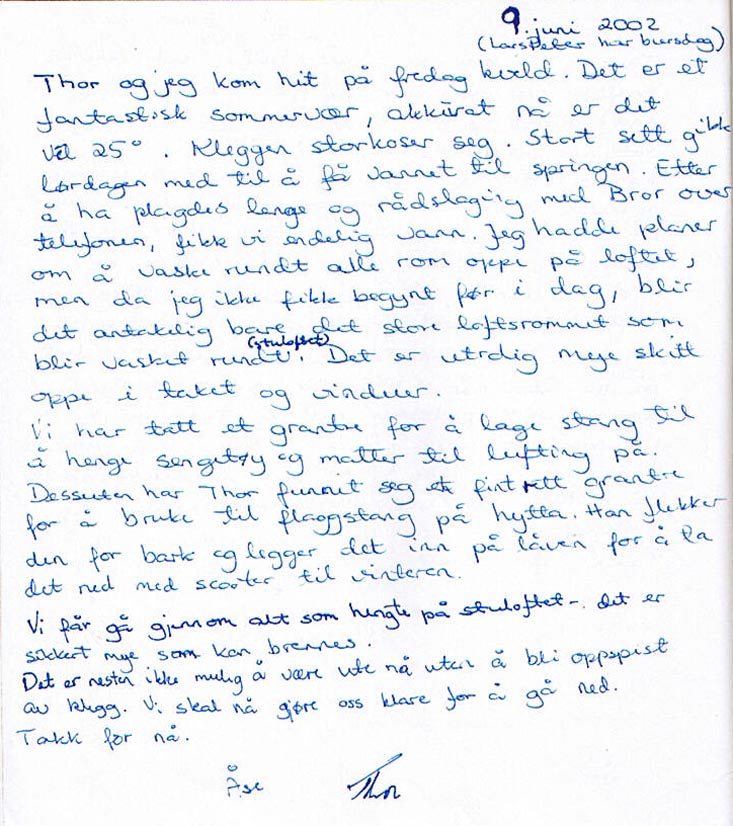 9. juni 2002
(Lars Peter har bursdag)
Thor og jeg kom hit på fredag kveld. Det er et
fantastisk sommervær, akkurat nå er det
vel 25°. Kleggen storkoser seg. Stort sett gikk
lørdagen med til å få vannet til springen. Etter
å ha plagdes lenge og rådslagig med Bror over
telefonen, fikk vi endelig vann. Jeg hadde planer
om å vaske rundt alle rom oppe på loftet,
men da jeg ikke fikk begynt før i dag, blir
det antakelig bare det store loftsrommit som
(stuloftet)
blir vasket rundt. Det er utrolig mye skitt
oppe i taket og vinduer.
Vi har tatt et grantre for å lage stang til
å henge sengetøy og matter til lufting på.
Dessuten har Thor funnit seg et fint rett grantre
for å bruke til flaggstang på hytta. Han flekker
den for bark og legger det inn på låven for å ta
det ned med scooter til vinteren.
Vi får gå gjennom alt som hengte på stuloftet - det er
sikkert mye som kan brennes.
Det er nesten ikke mulig å være ute nå uten å bli oppspist
av klegg. Vi skal nå gjøre oss klare for å gå ned.
Takk for nå.
Åse Thor